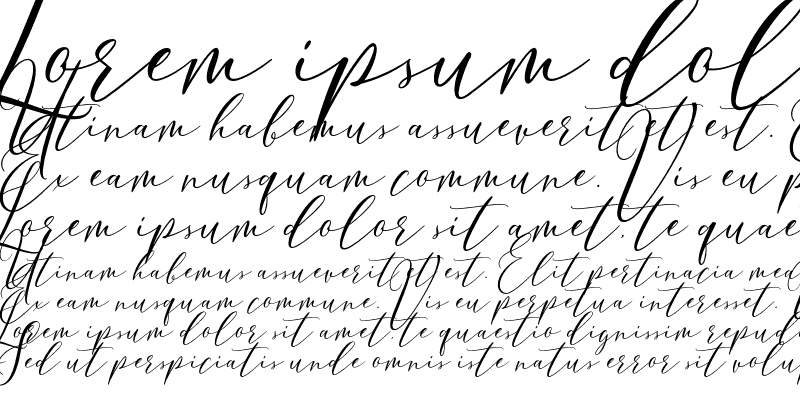 Lorem ipsum dol
Etinam habemus assueverit et est.
Ex eam nusquam commune. Vis eu
Lorem ipsum dolor sit amet, te quae
Etinam habemus assueverit et est. Elit pertinacia med
Ex eam nusquam commune. Vis eu perpetua interesset.
Lorem ipsum dolor sit amet, te quaestio dignissim repudi
Sed ut perspiciatis unde omnis iste natus error sit volup